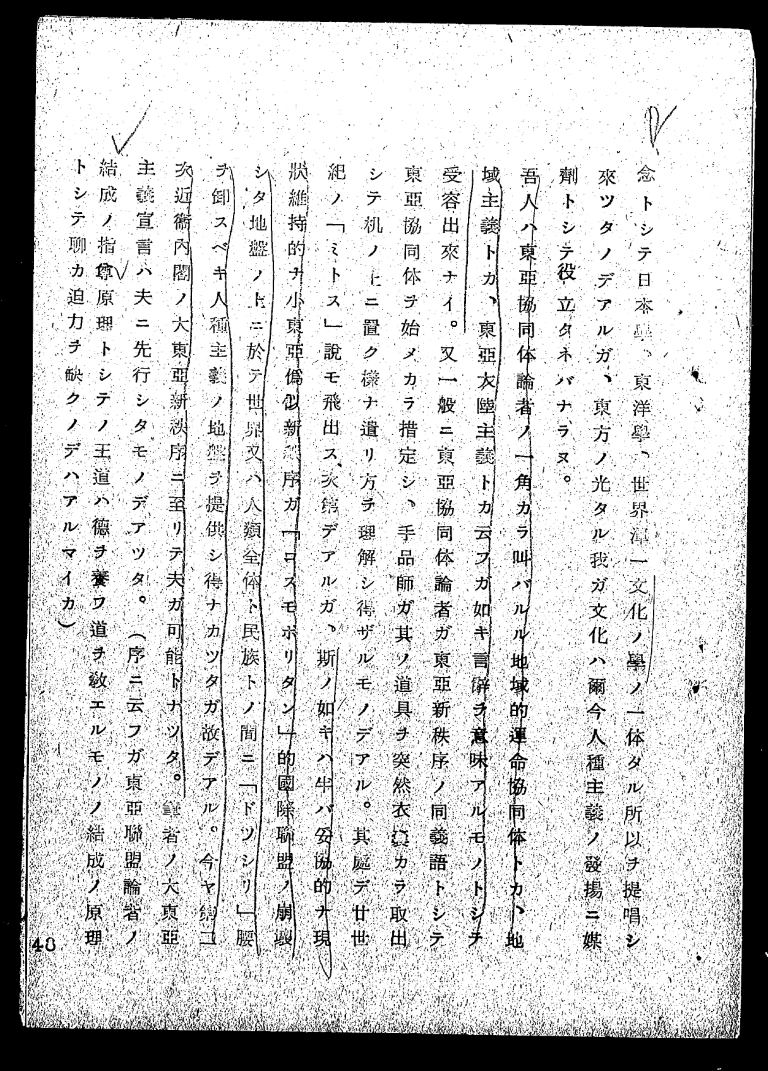 念トシテ日本學、東洋學、世界渾一文化ノ學ノ一体タル所以ヲ提唱シ
來ツタノデアルガ、東方ノ光タル我ガ文化ハ爾今人種主義ノ發揚ニ媒
劑トシテ役立タネバナラヌ。
吾人ハ東亞協同体論者ノ一角カラ叫バルル地域的運命協同体トカ、地
域主義トカ、東亞大陸主義トカ云フガ如キ言辭ヲ意味アルモノトシテ
受容出來ナイ。又一般ニ東亞協同体論者ガ東亞新秩序ノ同義語トシテ
東亞協同体ヲ始メカラ措定シ、手品師ガ其ノ道具ヲ突然衣嚢カラ取出
シテ机ノ上ニ置ク樣ナ遣リ方ヲ理解シ得ザルモノデアル。其處デ廿世
紀ノ「ミトス」說モ飛出ス次第デアルガ、斯ノ如キハ半バ妥協的ナ現
狀維持的ナ小東亞僞似新秩序ガ「コスモポリタン」的國際聯盟ノ崩壞
シタ地盤ノ上ニ於テ世界又ハ人類全体ト民族トノ間ニ「ドツシリ」腰
ヲ卸スベキ人種主義ノ地盤ヲ提供シ得ナカツタガ故デアル。今ヤ第二
次近衞內閣ノ大東亞新秩序ニ至リテ夫ガ可能トナツタ。筆者ノ大東亞
主義宣言ハ夫ニ先行シタモノデアツタ。（序ニ云フガ東亞聯盟論者ノ
結成ノ指導原理トシテノ王道ハ德ヲ養フ道ヲ敎エルモノノ結成ノ原理
トシテ聊カ迫力ヲ缺クノデハアルマイカ）
48